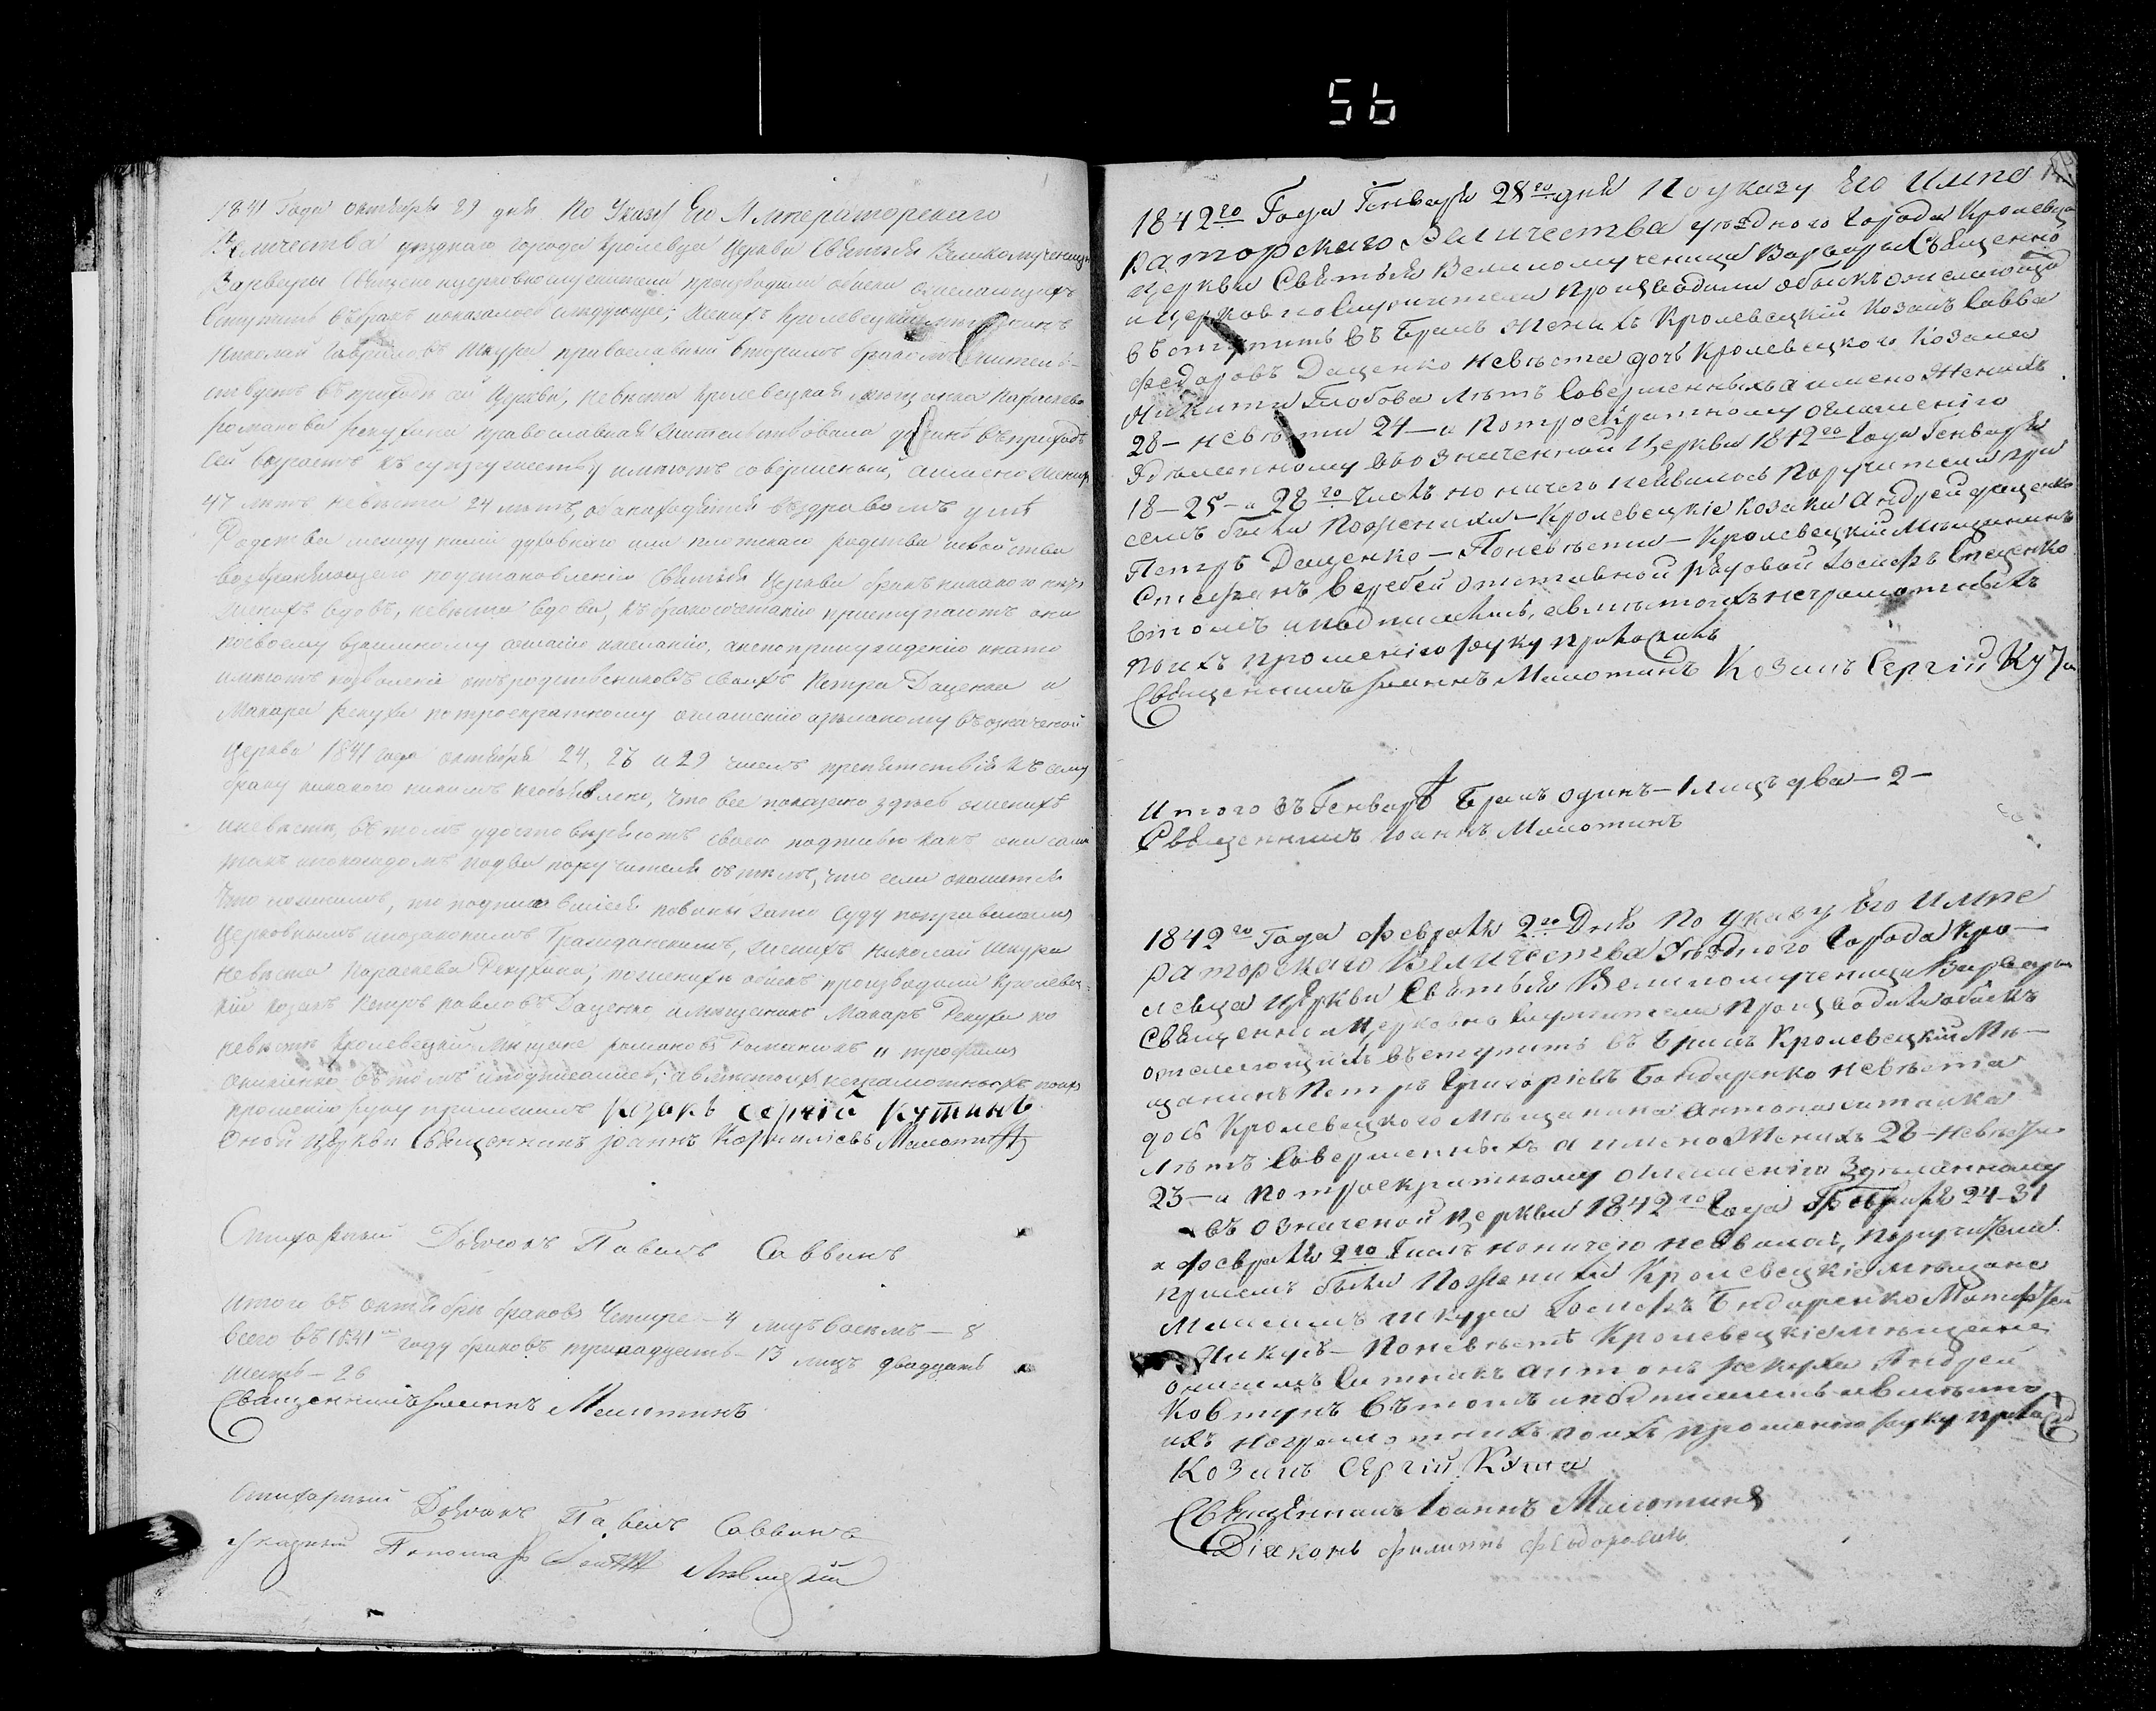 56
1841 Года октября 29 дня По Указу Его Императорскаго
Величества уезднаго города Кролевца Церкви Святыя Великомученицы
Варвары Священно и церковнослужители производили обиск о желающихъ
вступить въ бракъ и оказалось следующее; Женихъ Кролевецкий мещанинъ
Николай Гавриловъ Шкура православный вторымъ бракомъ жительствуетъ
въ приходе ей Церкви, невеста Кролевецкая мещанка Параскева
Романова Рекухина православная жительствовала въ приходе
сей возрастъ къ супружеству имеютъ совершенный, а имено женихъ
47 летъ невеста 24 летъ, оба находятся въ здравомъ уме
Родства между ними духовнаго или плотскаго родства и свойства
возбраняющаго по установлению Святыя Церкви бракъ никакого нетъ
женихъ вдовъ, невеста вдова, къ бракосочетанию приступаютъ они
по своему взаимному согласию и желанию, а не по принуждению и на то
имеютъ позволение отъ родственниковъ своихъ Петра Даценка и
Макара Рекухи по троекратному оглашению зделаному въ означеной
церкви 1841 года октября 24, 26 и 29 числъ препятствия къ сему
браку никакого никимъ не объявлено, что все показано здесь о женихе
и невесте, въ томъ удостоверяютъ своею подписью какъ они сами
такъ и по два поручителя съ темъ, что если окажется
что ложнымъ, то подписавшиеся повины за то суду по правиламъ
церковнымъ и по законамъ Гражданскимъ, женихъ Николай Шкура
невеста Параскева Рекухина; по женихе обискъ производили Кролевец-
кий козакъ Петръ Павловъ Даценко и мещанинъ Макаръ Рекуха по
невесте Кролевецкий Мещане Романовъ и Трофимъ
въ томъ и подписались; а вместо ихъ неграмотныхъ по ихъ
прошению руку приложилъ Козакъ Сергій Кутинъ
Оной Церкви Священникъ Іоаннъ Корнилиевъ Малютинъ
Стихарный Дьячокъ Павелъ Саввинъ
Итого въ октябри браковъ Четире - 4 лицъ восемь - 8
Всего въ 1841 году браковъ тринадцать - 13 лицъ двадцать
шесть - 26
Священникъ Іоаннъ Малютинъ
Стихарный Дьячокъ Павелъ Саввинъ
Указный Пономарь Левицкій
1842го Года Генваря 28го дня По указу Его Импе
раторскаго Величества уездного города Кролевца
церкви Святыя Великомученицы Варвары Священно
и церковнослужители Производили обыскъ о желающихъ
вступить въ Бракъ Женихъ Кролевецкій Козакъ Савва
Федоровъ Даценко Невеста дочь Кролевецкого Козака
Никиты Глобова летъ Совершенныхъ а имено Женихъ
28 - невеста 24 - и По троекратному оглашенію
Зделанному въ означенной Церкви 1842го Года Генваря
18 - 25 - и 28го числъ но ничего неявилось Поручители при
семъ были По женихе - Кролевецкіе Козаки Андрей Даценко
Петръ Даценко - По невесте - Кролевецкій Мещанинъ
Стефанъ Веребей отставной рядовой Іосифъ Ещенко
Въ томъ и подписались, а вместо ихъ неграмотныхъ
По ихъ прошенію руку приложилъ
Священникъ Іоаннъ Малютинъ Козакъ Сергій Куча
Итого въ Генваре Бракъ одинъ - 1 лицъ два - 2 -
Священникъ Іоаннъ Малютинъ
1842го Года февраля 2го Дня По указу Его Импе
раторскаго Величества Уездного Города Кро-
левца Церкви Святыя Великомученицы Варвары
Священно и Церковнослужители Производили обыскъ
о желающихъ вступить въ Бракъ Кролевецкій Ме-
щанинъ Петръ Григоріевъ Бондаренко невеста
дочь Кролевецкого Мещанина Антона Ситника
летъ Совершенныхъ а имено Женихъ 28 - невеста
23 - и По троекратному оглашенію Зделанному
въ означеной Церкви 1842го Года Генваря 24 - 31
и февраля 2го числъ но ничего неявилось, поручители
при семъ были По женихе Кролевецкіе мещане
Максимъ Шкура Іосифъ Бндаренко Матфей
Никулъ - По невесте Кролевецкіе мещане
Онисимъ Ситникъ Антонъ Рекуха Андрей
Ковтунъ Въ томъ и подписались а вместо
ихъ неграмотныхъ по ихъ прошению руку приложилъ
Козакъ Сергій Куча
Священникъ Іоаннъ Малютинъ
Діяконъ Филиппъ Федоровичъ